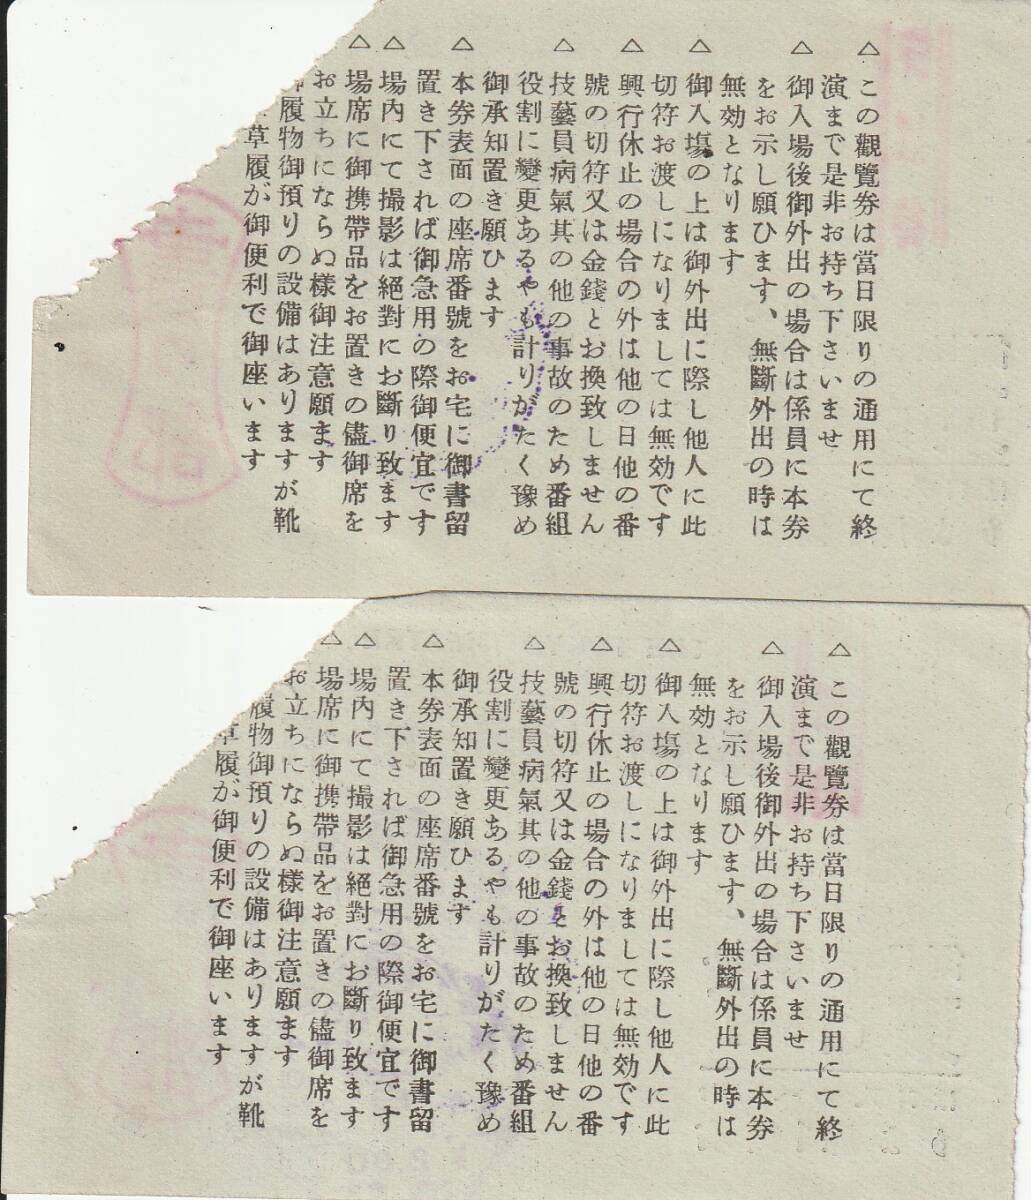 △この觀覽券は當日限りの通用にて終
演まで是非お持ち下さいませ
△御入場後御外出の場合は係員に本券
をお示し願ひます、無斷外出の時は
無効となります
△御入塲の上は御外出に際し他人に此
切符お渡しになりましては無効です
△興行休止の場合の外は他の日他の番
號の切符又は金錢とお換致しません
△技藝員病氣其の他の事故のため番組
役割に變更あるやも計りがたく豫め
御承知置き願ひます
△本券表面の座席番號をお宅に御書留
置き下されば御急用の際御便宜です
△場内にて撮影は絕對にお斷り致ます
△場席に御携帶品をお置きの儘御席を
お立ちにならぬ樣御注意願ます
履物御預りの設備はありますが靴
草履が御便利で御座います
△この觀覽券は當日限りの通用にて終
演まで是非お持ち下さいませ
△御入場後御外出の場合は係員に本券
をお示し願ひます、無斷外出の時は
無効となります
△御入塲の上は御外出に際し他人に此
切符お渡しになりましては無効です
△興行休止の場合の外は他の日他の番
號の切符又は金錢とお換致しません
△技藝員病氣其の他の事故のため番組
役割に變更あるやも計りがたく豫め
御承知置き願ひます
△本券表面の座席番號をお宅に御書留
置き下されば御急用の際御便宜です
△場内にて撮影は絕對にお斷り致ます
△場席に御携帶品をお置きの儘御席を
お立ちにならぬ樣御注意願ます
履物御預りの設備はありますが靴
草履が御便利で御座います